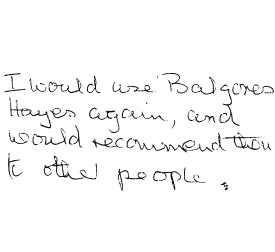 I would use Balgores
Hayes again, and
would recommend them
to other people.